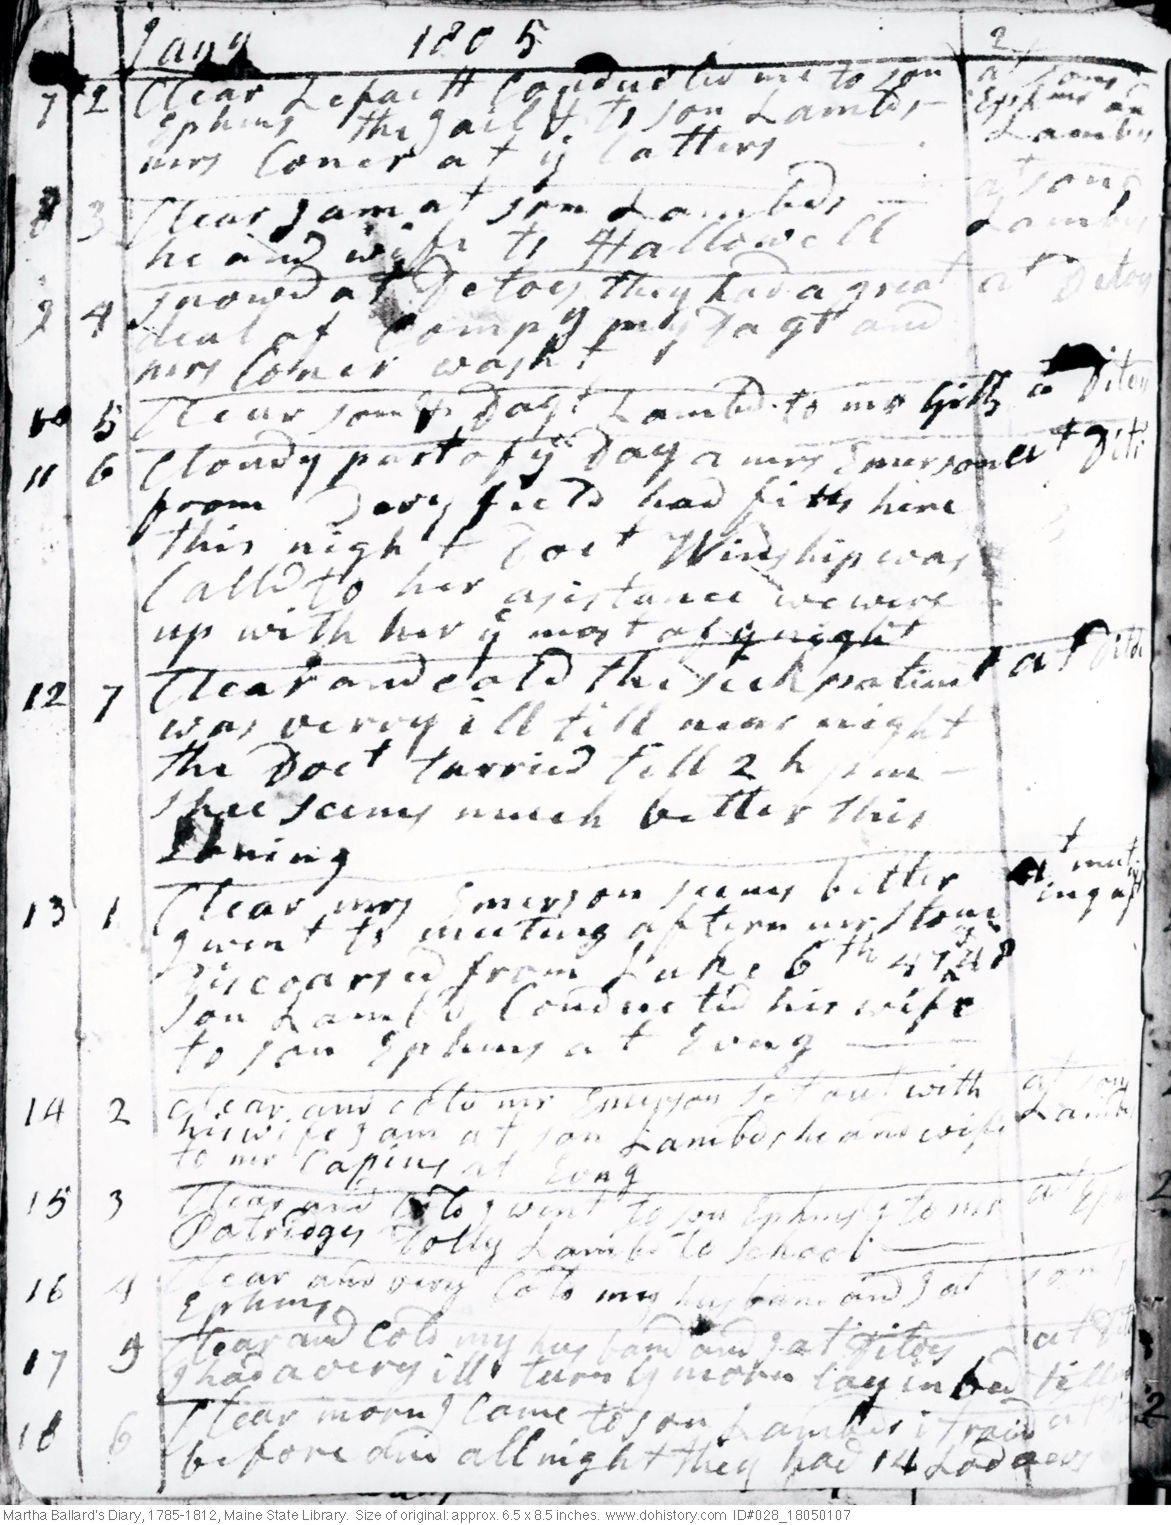 Jany 1805 2
7 2 Clear Lefaett Conducted me to son at sons
Ephms the Jail & to son Lambds - Ephms and
mrs Coner at ye latters Lambds
8 3 Clear I am at son Lambds at sons
he and wife to Hallowell Lambds
9 4 snowd at Detoes they had a great at Detoes
deal of Compy my Dagt and
mrs Coner washt
10 5 Clear son & Dagt Lambd to mr Gills at Ditoes
11 6 Cloudy part of ye Day a mrs Emerson at Dito
from field had fitts here
this night Doct Winship was
Calld to her asistance we were
up with her ye most of ye night
12 7 Clear and cold the sick patient at Dito
was verry ill till near night
the Doct tarried till 2 h pm -
shee seems much better this
Evning
13 1 Clear mrs Emerson seems better at meet
I went to meeting aftern mr Stone ing aft
Discoarsed from Luke 6th 47 48
son Lambd Conducted his wife
to son Ephms at Evng
14 2 Clear and cold mr Emerson set out with at sons
his wife I am at son Lambds he and wife Lambds
to mr Capins at Evng
15 3 Clear and Cold I went to son Ephms & to mr at Ephms
Patridges Dolly Lambd to School
16 4 Clear and very Cold my husband and I at son
Ephms
17 5 Clear and cold my husband and I at Ditoes at Dito
I had a very ill turn ye morn lay in bed till
18 6 Clear morn I Came to son Lambds it raind at
before and all night they had 14 Lodgers
Martha Ballard's Diary, 1785-1812, Maine State Library. Size of original: approx. 6.5 x 8.5 inches. www.dohistory.com ID#028_18050107